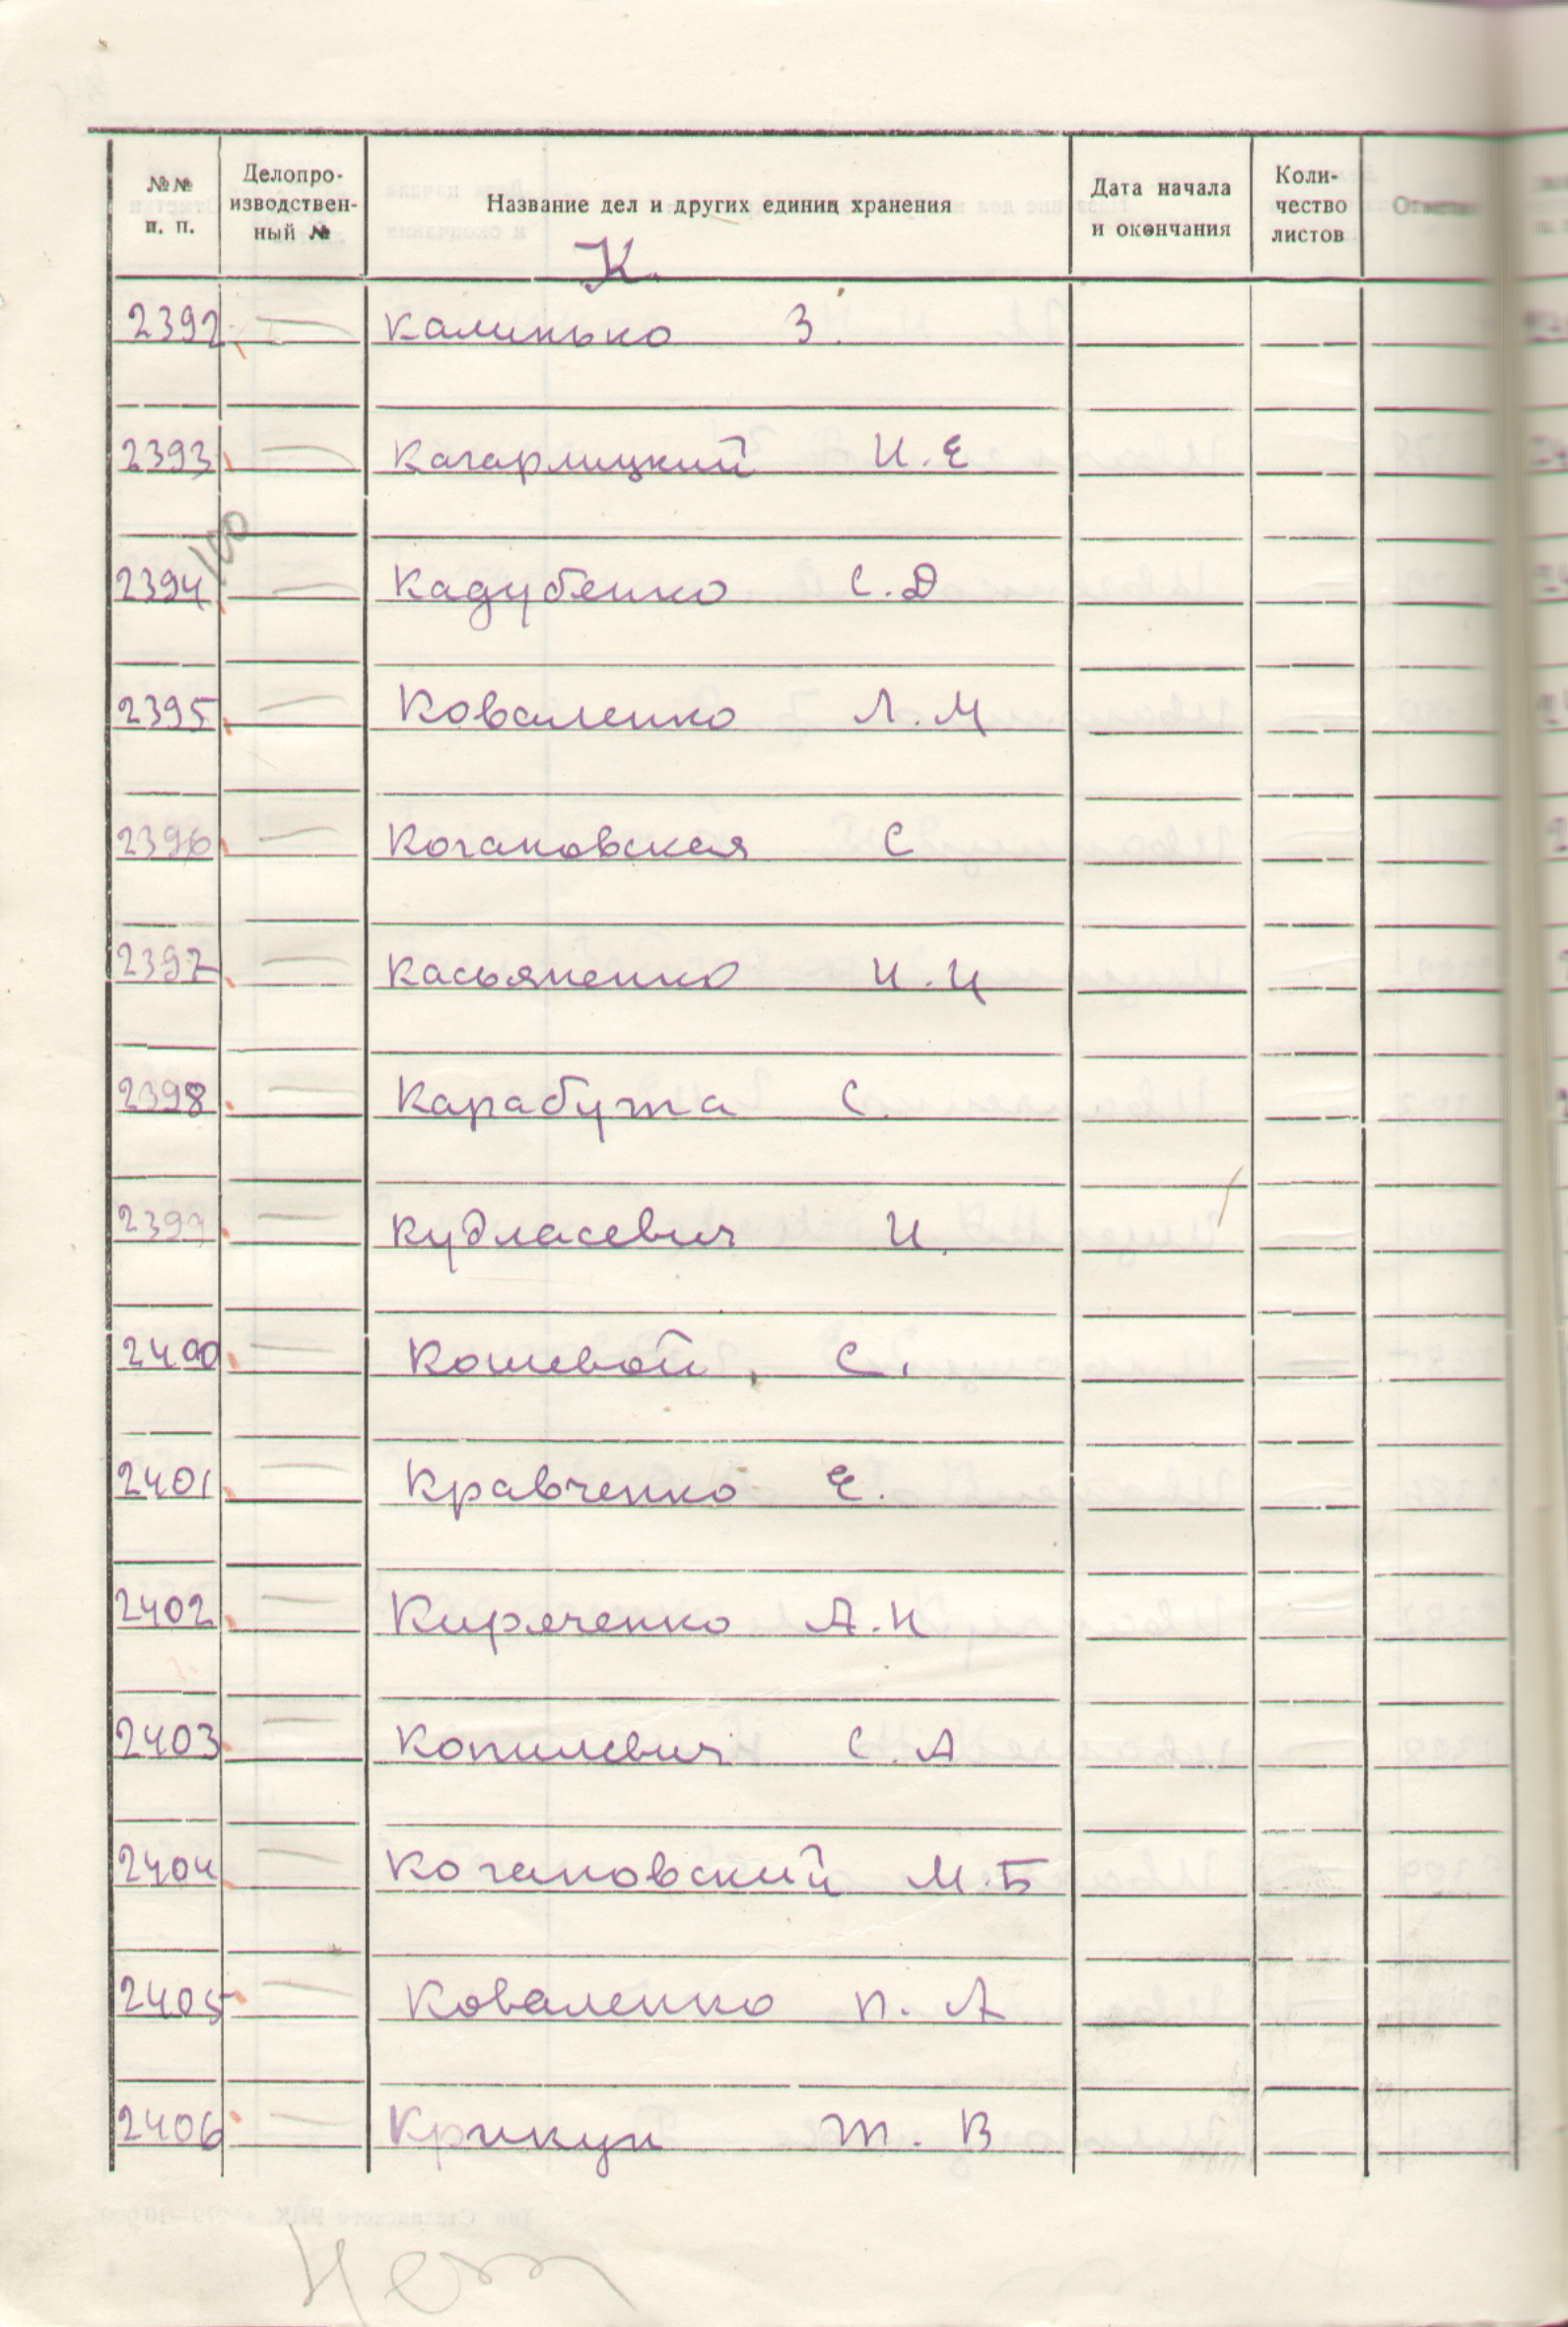 №№ п. п. Делопро-изводствен-ный № Название дел и других единиц хранения Дата начала и окончания Коли-чество листов
К.
2392 Калинько З.
2393 Кагарлицкий И.Е
100
2394 Кадубенко С.Д
2395 Коваленко Л.М
2396 Когановская С
2397 Касьяненко И.И
2398 Карабута С.
2399 Кудласевич И.
2400 Кошевой С.
2401 Кравченко Е.
2402 Киряченко А.И
2403 Копилевич С.А
2404 Когановский М.Б
2405 Коваленко П.А
2406 Крикун Т.В
Нет